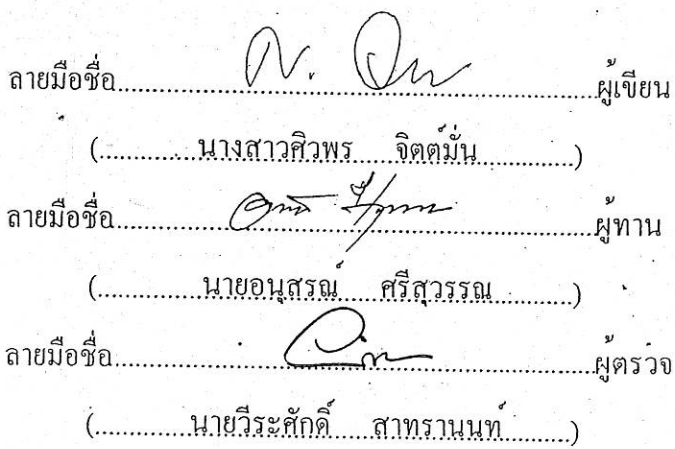 ลายมือชื่อ............ผู้เขียน
(............นางสาวศิวพร จิตต์มั่น............)
ลายมือชื่อ............ผู้ทาน
(............นายอนุสรณ์ ศรีสุวรรณ............)
ลายมือชื่อ............ผู้ตรวจ
(............นายวีระศักดิ์ สาทรานนท์............)